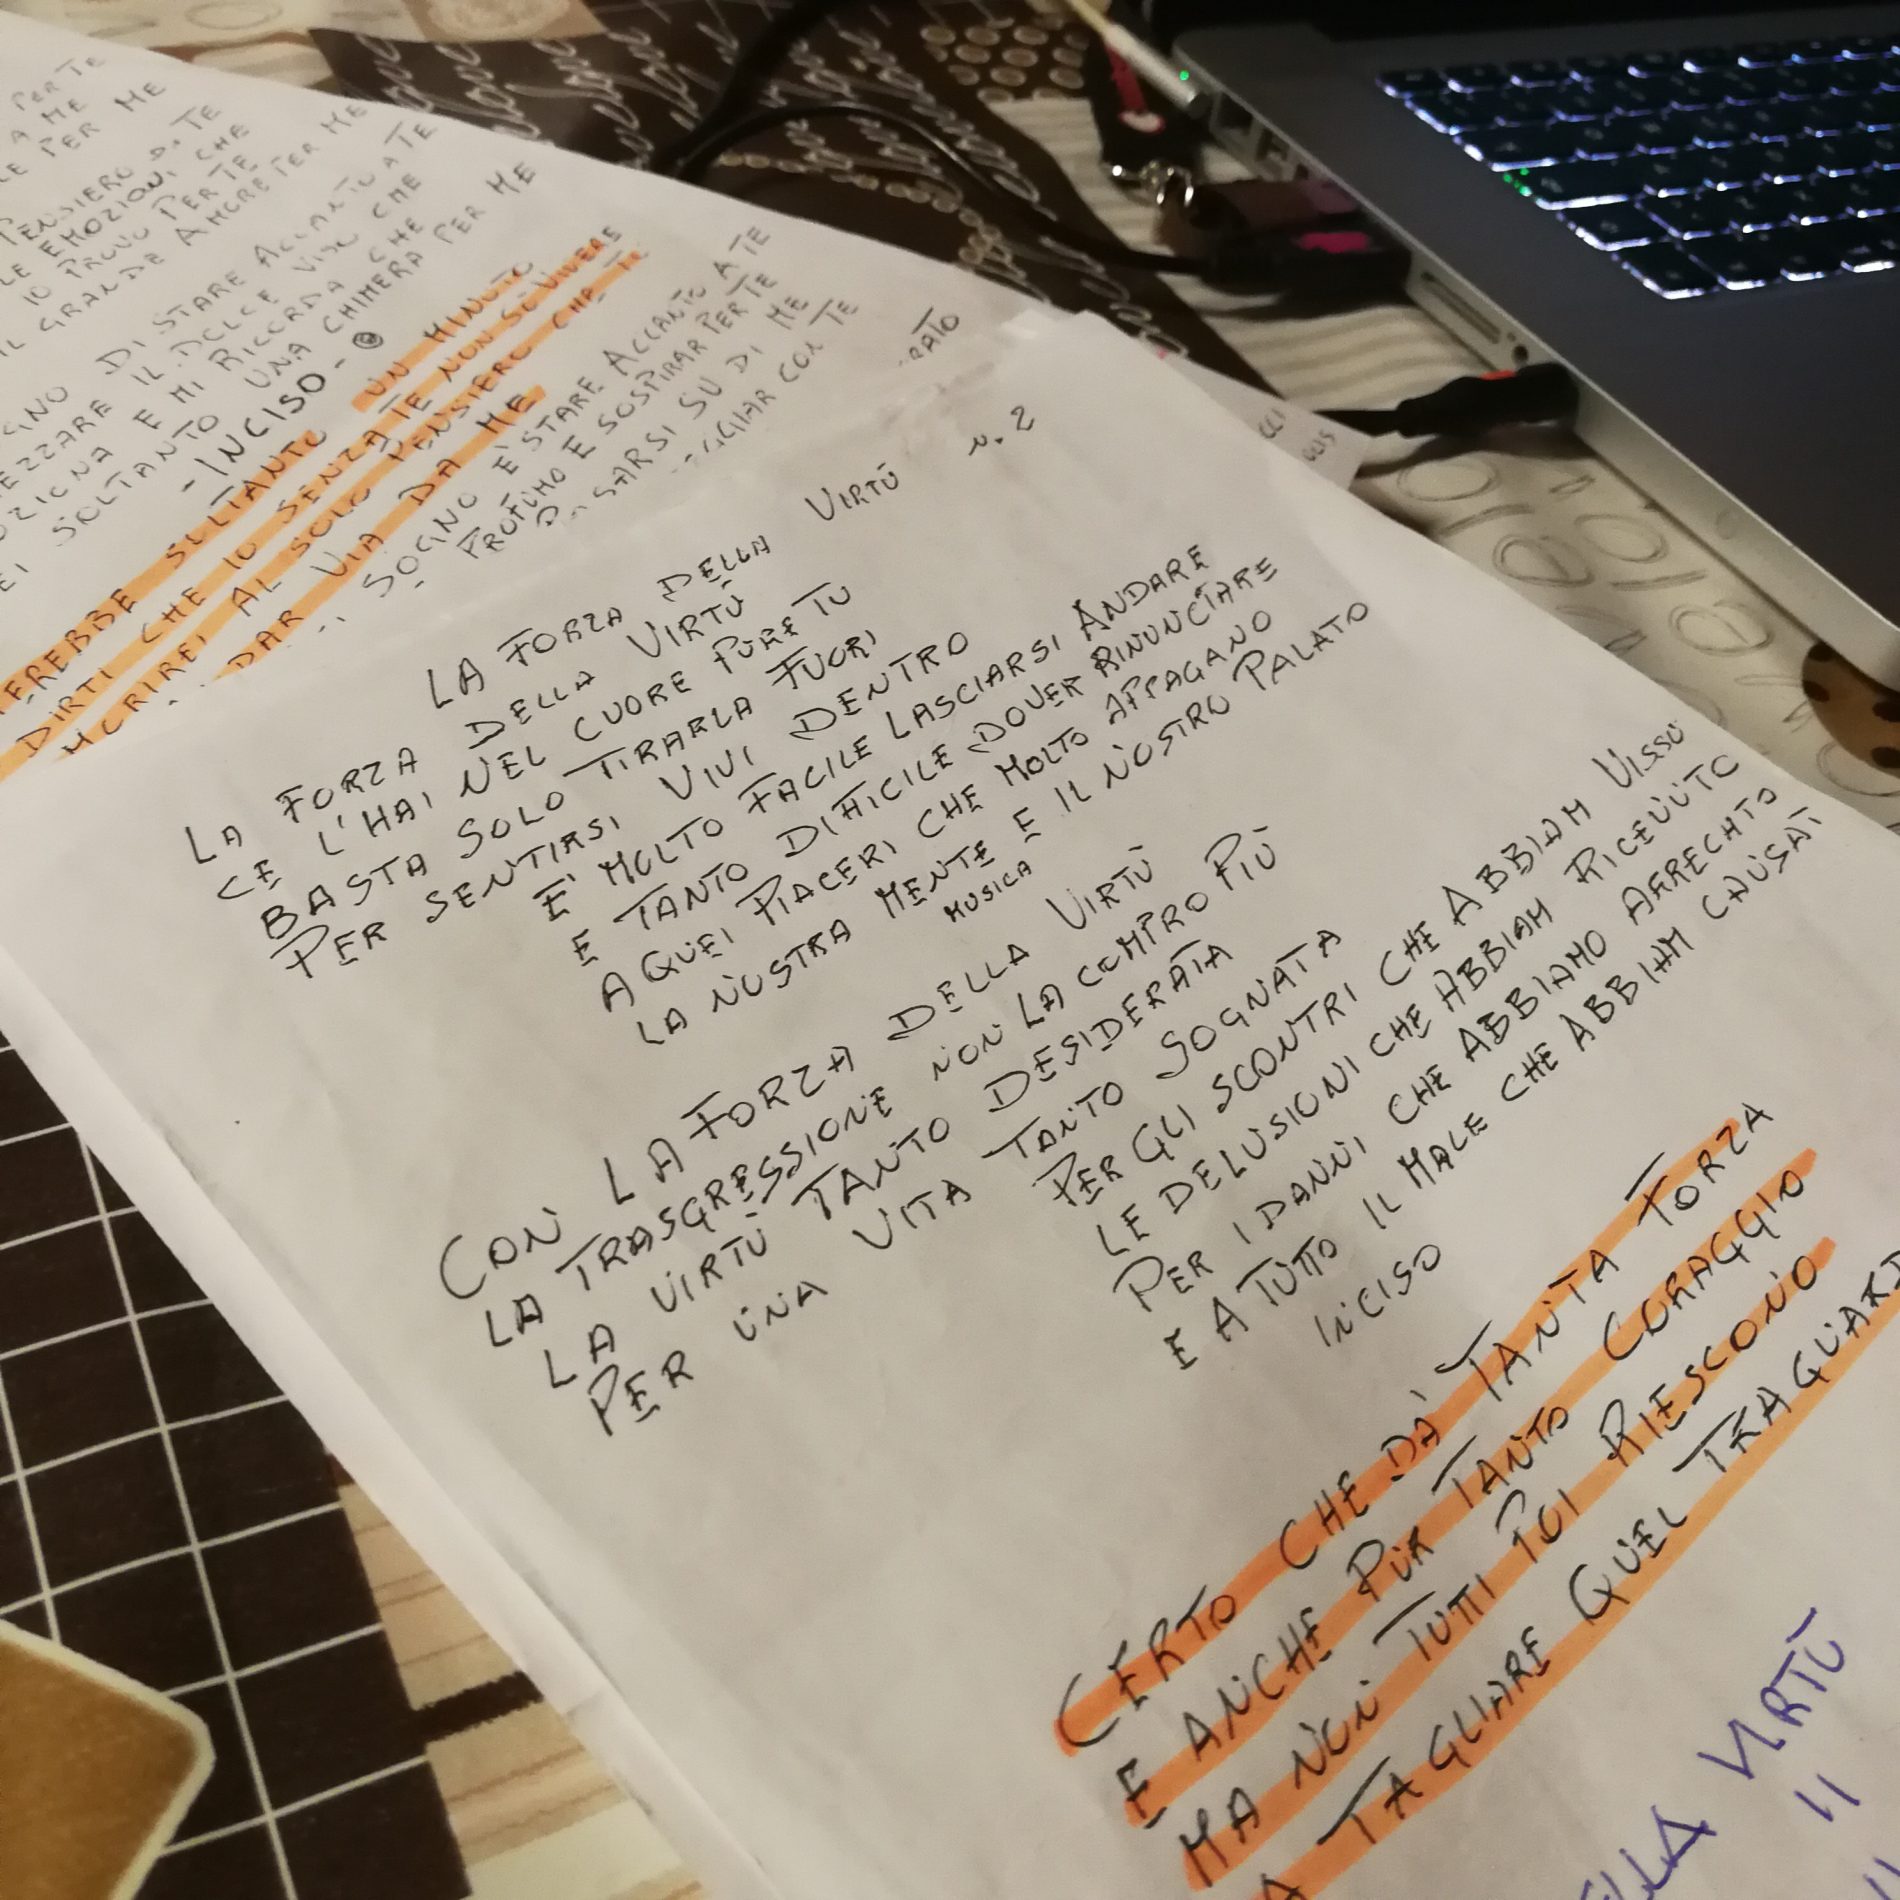 PER TE
A ME
PER ME
PENSIERO DI TE
LE EMOZIONI CHE
IO PROVO PER TE
IL GRANDE AMORE PER ME
DI STARE ACCANTO A TE
IL DOLCE VISO CHE
E MI RICORDA CHE
SOLTANTO UNA CHIMERA PER ME
- INCISO -
SOLTANTO UN MINUTO
DIRTI CHE IO SENZA TE NON SO VIVERE
MORIREI AL SOLO PENSIERO CHE TE
DAR VIA DA ME
SOGNO È STARE ACCANTO A TE
PROFUMO E SOSPIRAR PER TE
SU DI ME
CON TE
LA FORZA DELLA VIRTÙ N. 2
LA FORZA DELLA VIRTÙ
CE L'HAI NEL CUORE PURE TU
BASTA SOLO TIRARLA FUORI
PER SENTIRSI VIVI DENTRO
E' MOLTO FACILE LASCIARSI ANDARE
E TANTO DIFFICILE DOVER RINUNCIARE
A QUEI PIACERI CHE MOLTO APPAGANO
LA NOSTRA MENTE E IL NOSTRO PALATO
MUSICA
CON LA FORZA DELLA VIRTÙ
LA TRASGRESSIONE NON LA COMPRO PIÙ
LA VIRTÙ TANTO DESIDERATA
PER UNA VITA TANTO SOGNATA
PER GLI SCONTRI CHE ABBIAM VISSU
LE DELUSIONI CHE ABBIAM RICEVUTO
PER I DANNI CHE ABBIAMO ARRECATO
E A TUTTO IL MALE CHE ABBIAM CAUSAT
INCISO
CERTO CHE DÀ TANTA FORZA
E ANCHE PUR TANTO CORAGGIO
MA NON TUTTI POI RIESCONO
A TAGLIARE QUEL TRAGUARD
VIRTÙ